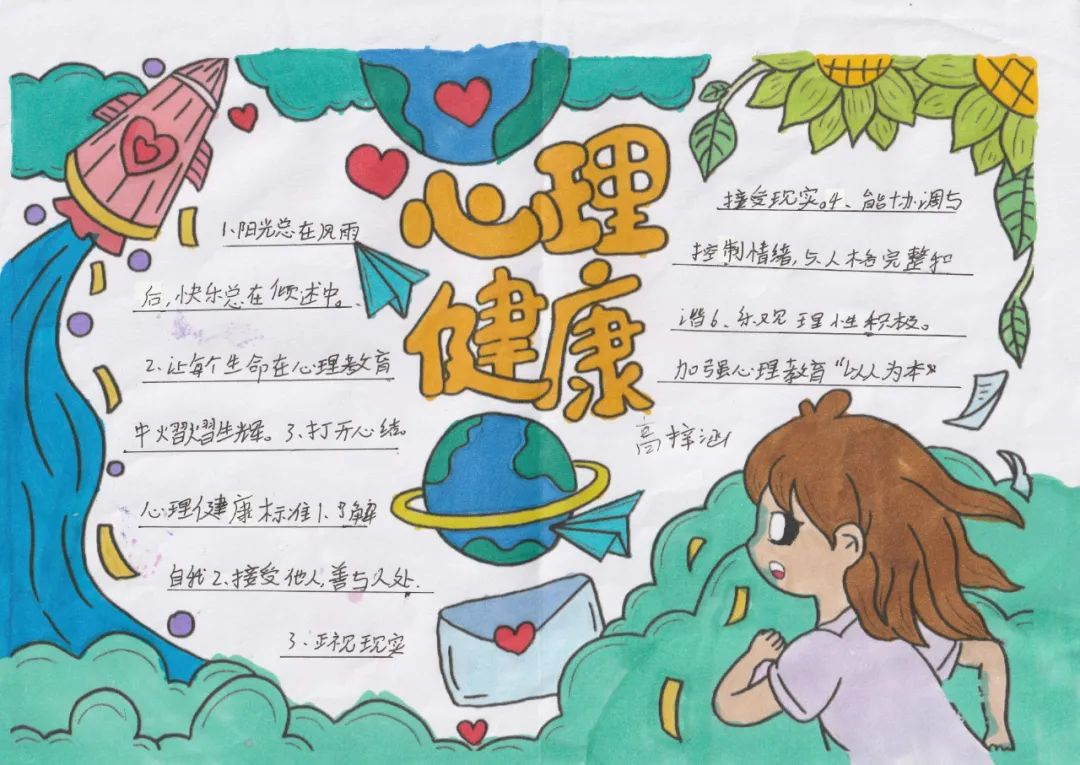 心理
健康
1.阳光总在风雨
后,快乐总在倾述中。
2.让每个生命在心理教育
中熠熠生辉。3.打开心结。
心理健康标准1.了解
自我2、接受他人,善与人处.
3.正视现实
接受现实。4、能协调与
控制情绪,5.人格完整和
谐6、乐观理性积极。
加强心理教育“以人为本”
高梓涵